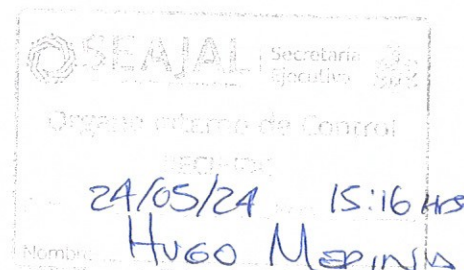 SEAJAL Secretaría
Ejecutiva
Órgano Interno de Control
24/05/24 15:16 HRS
Nombre: HUGO MEDINA